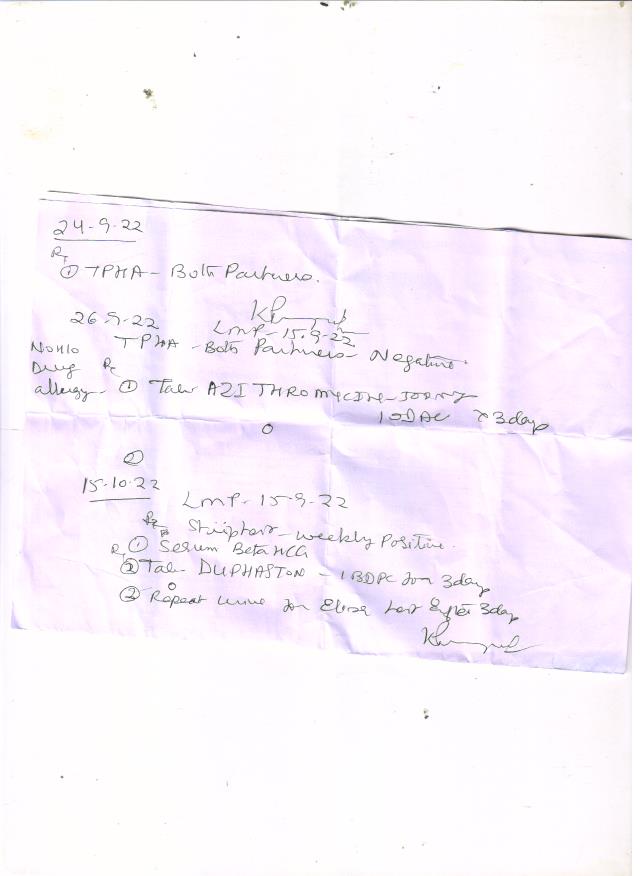 24-9-22
Rx
① TPHA - Both Partners.
26-9-22
LMP - 15.9-22
TPHA - Both Partners - Negative.
No H/o
Drug Rx
allergy - ① Tab AZITHROMYCINE - 500 mg
1 OD AC x 3 day
②
15-10-22 LMP - 15-9-22
Striptest - weekly Positive.
Rx ① Serum Beta HCG
② Tab - DUPHASTON - 1 BDPC for 3 day
② Repeat urine for Elisa test after 3 day